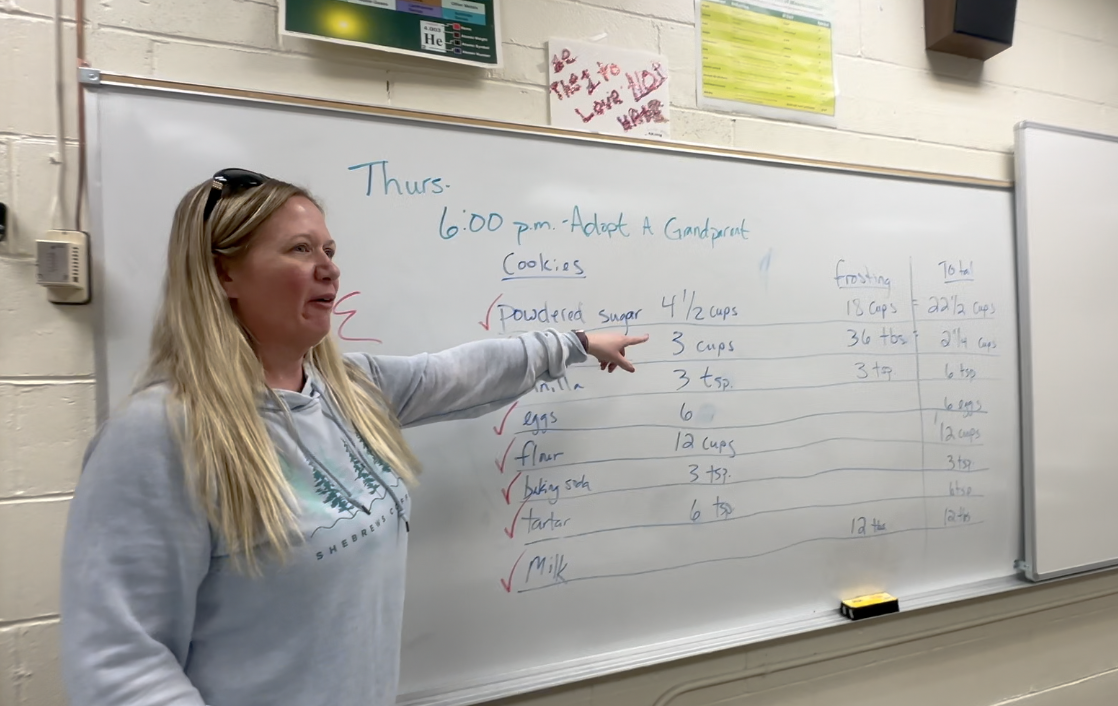 He
BE
The 1 to
LOVE NOT
HATE
Thurs.
6:00 p.m. - Adopt A Grandparent
Cookies frosting Total
powdered sugar 4 1/2 cups 18 cups = 22 1/2 cups
3 cups 36 tbs. 2 1/4 cups
nilla 3 tsp. 3 tsp 6 tsp
eggs 6 6 eggs
flour 12 cups 12 cups
baking soda 3 tsp. 3 tsp
tartar 6 tsp 6 tsp
Milk 12 tbs 12 tbs
SHEBREWS